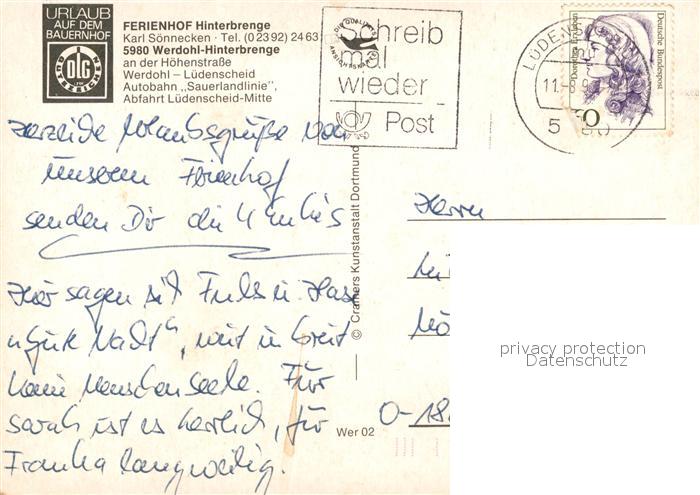 URLAUB
AUF DEM
BAUERNHOF
DLG
FERIENHOF Hinterbrenge
Karl Sönnecken · Tel. (0 23 92) 24 63
5980 Werdohl-Hinterbrenge
an der Höhenstraße
Werdohl – Lüdenscheid
Autobahn „Sauerlandlinie",
Abfahrt Lüdenscheid-Mitte
Schreib
mal
wieder
Post
LÜDEN
11.-8.9
5
Dorothea Erxleben
Deutsche Bundespost
Herzliche Urlaubsgrüße von
unserem Ferienhof
senden Dir die 4
Hier sagen sich Fuchs u. Hase
„Gute Nacht", weit u. breit
keine Menschenseele. Für
Sarah ist es herrlich, für
Franka langweilig.
© Cramers Kunstanstalt Dortmund
Wer 02
Herrn
Mö
O-18
privacy protection
Datenschutz